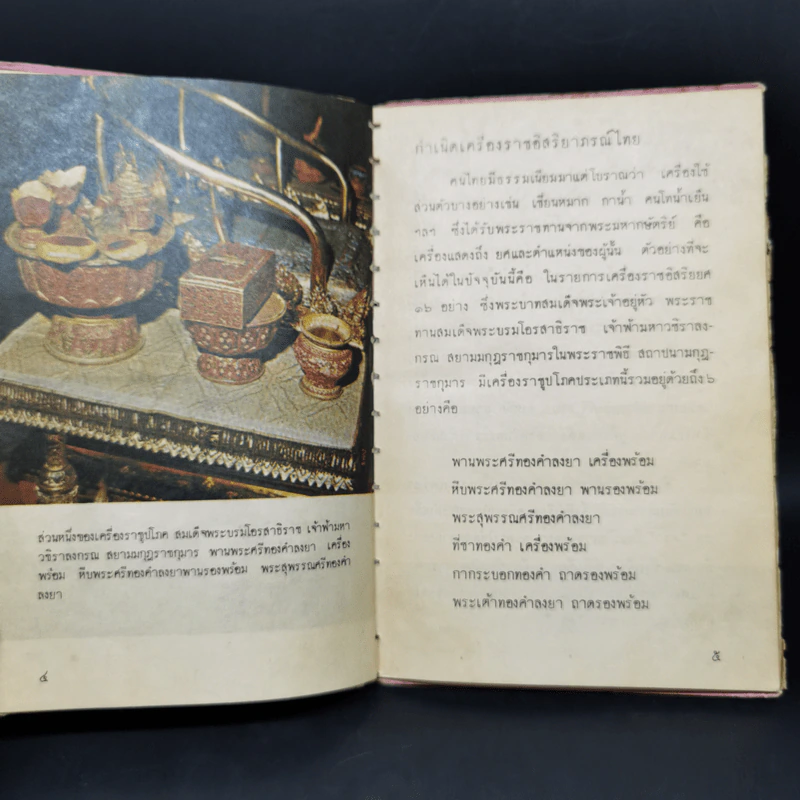 ส่วนหนึ่งของเครื่องราชูปโภค สมเด็จพระบรมโอรสาธิราช เจ้าฟ้ามหา
วชิราลงกรณ สยามมกุฎราชกุมาร พานพระศรีทองคำลงยา เครื่อง
พร้อม หีบพระศรีทองคำลงยาพานรองพร้อม พระสุพรรณศรีทองคำ
ลงยา
๔
กำเนิดเครื่องราชอิสริยาภรณ์ไทย
คนไทยมีธรรมเนียมมาแต่โบราณว่า เครื่องใช้
ส่วนตัวบางอย่างเช่น เชี่ยนหมาก กาน้ำ คนโทน้ำเย็น
ฯลฯ ซึ่งได้รับพระราชทานจากพระมหากษัตริย์ คือ
เครื่องแสดงถึง ยศและตำแหน่งของผู้นั้น ตัวอย่างที่จะ
เห็นได้ในปัจจุบันนี้คือ ในรายการเครื่องราชอิสริยยศ
๑๖ อย่าง ซึ่งพระบาทสมเด็จพระเจ้าอยู่หัว พระราช
ทานสมเด็จพระบรมโอรสาธิราช เจ้าฟ้ามหาวชิราลง-
กรณ สยามมกุฎราชกุมารในพระราชพิธี สถาปนามกุฎ-
ราชกุมาร มีเครื่องราชูปโภคประเภทนี้รวมอยู่ด้วยถึง๖
อย่างคือ
พานพระศรีทองคำลงยา เครื่องพร้อม
หีบพระศรีทองคำลงยา พานรองพร้อม
พระสุพรรณศรีทองคำลงยา
ที่ชาทองคำ เครื่องพร้อม
กากระบอกทองคำ ถาดรองพร้อม
พระเต้าทองคำลงยา ถาดรองพร้อม
๕